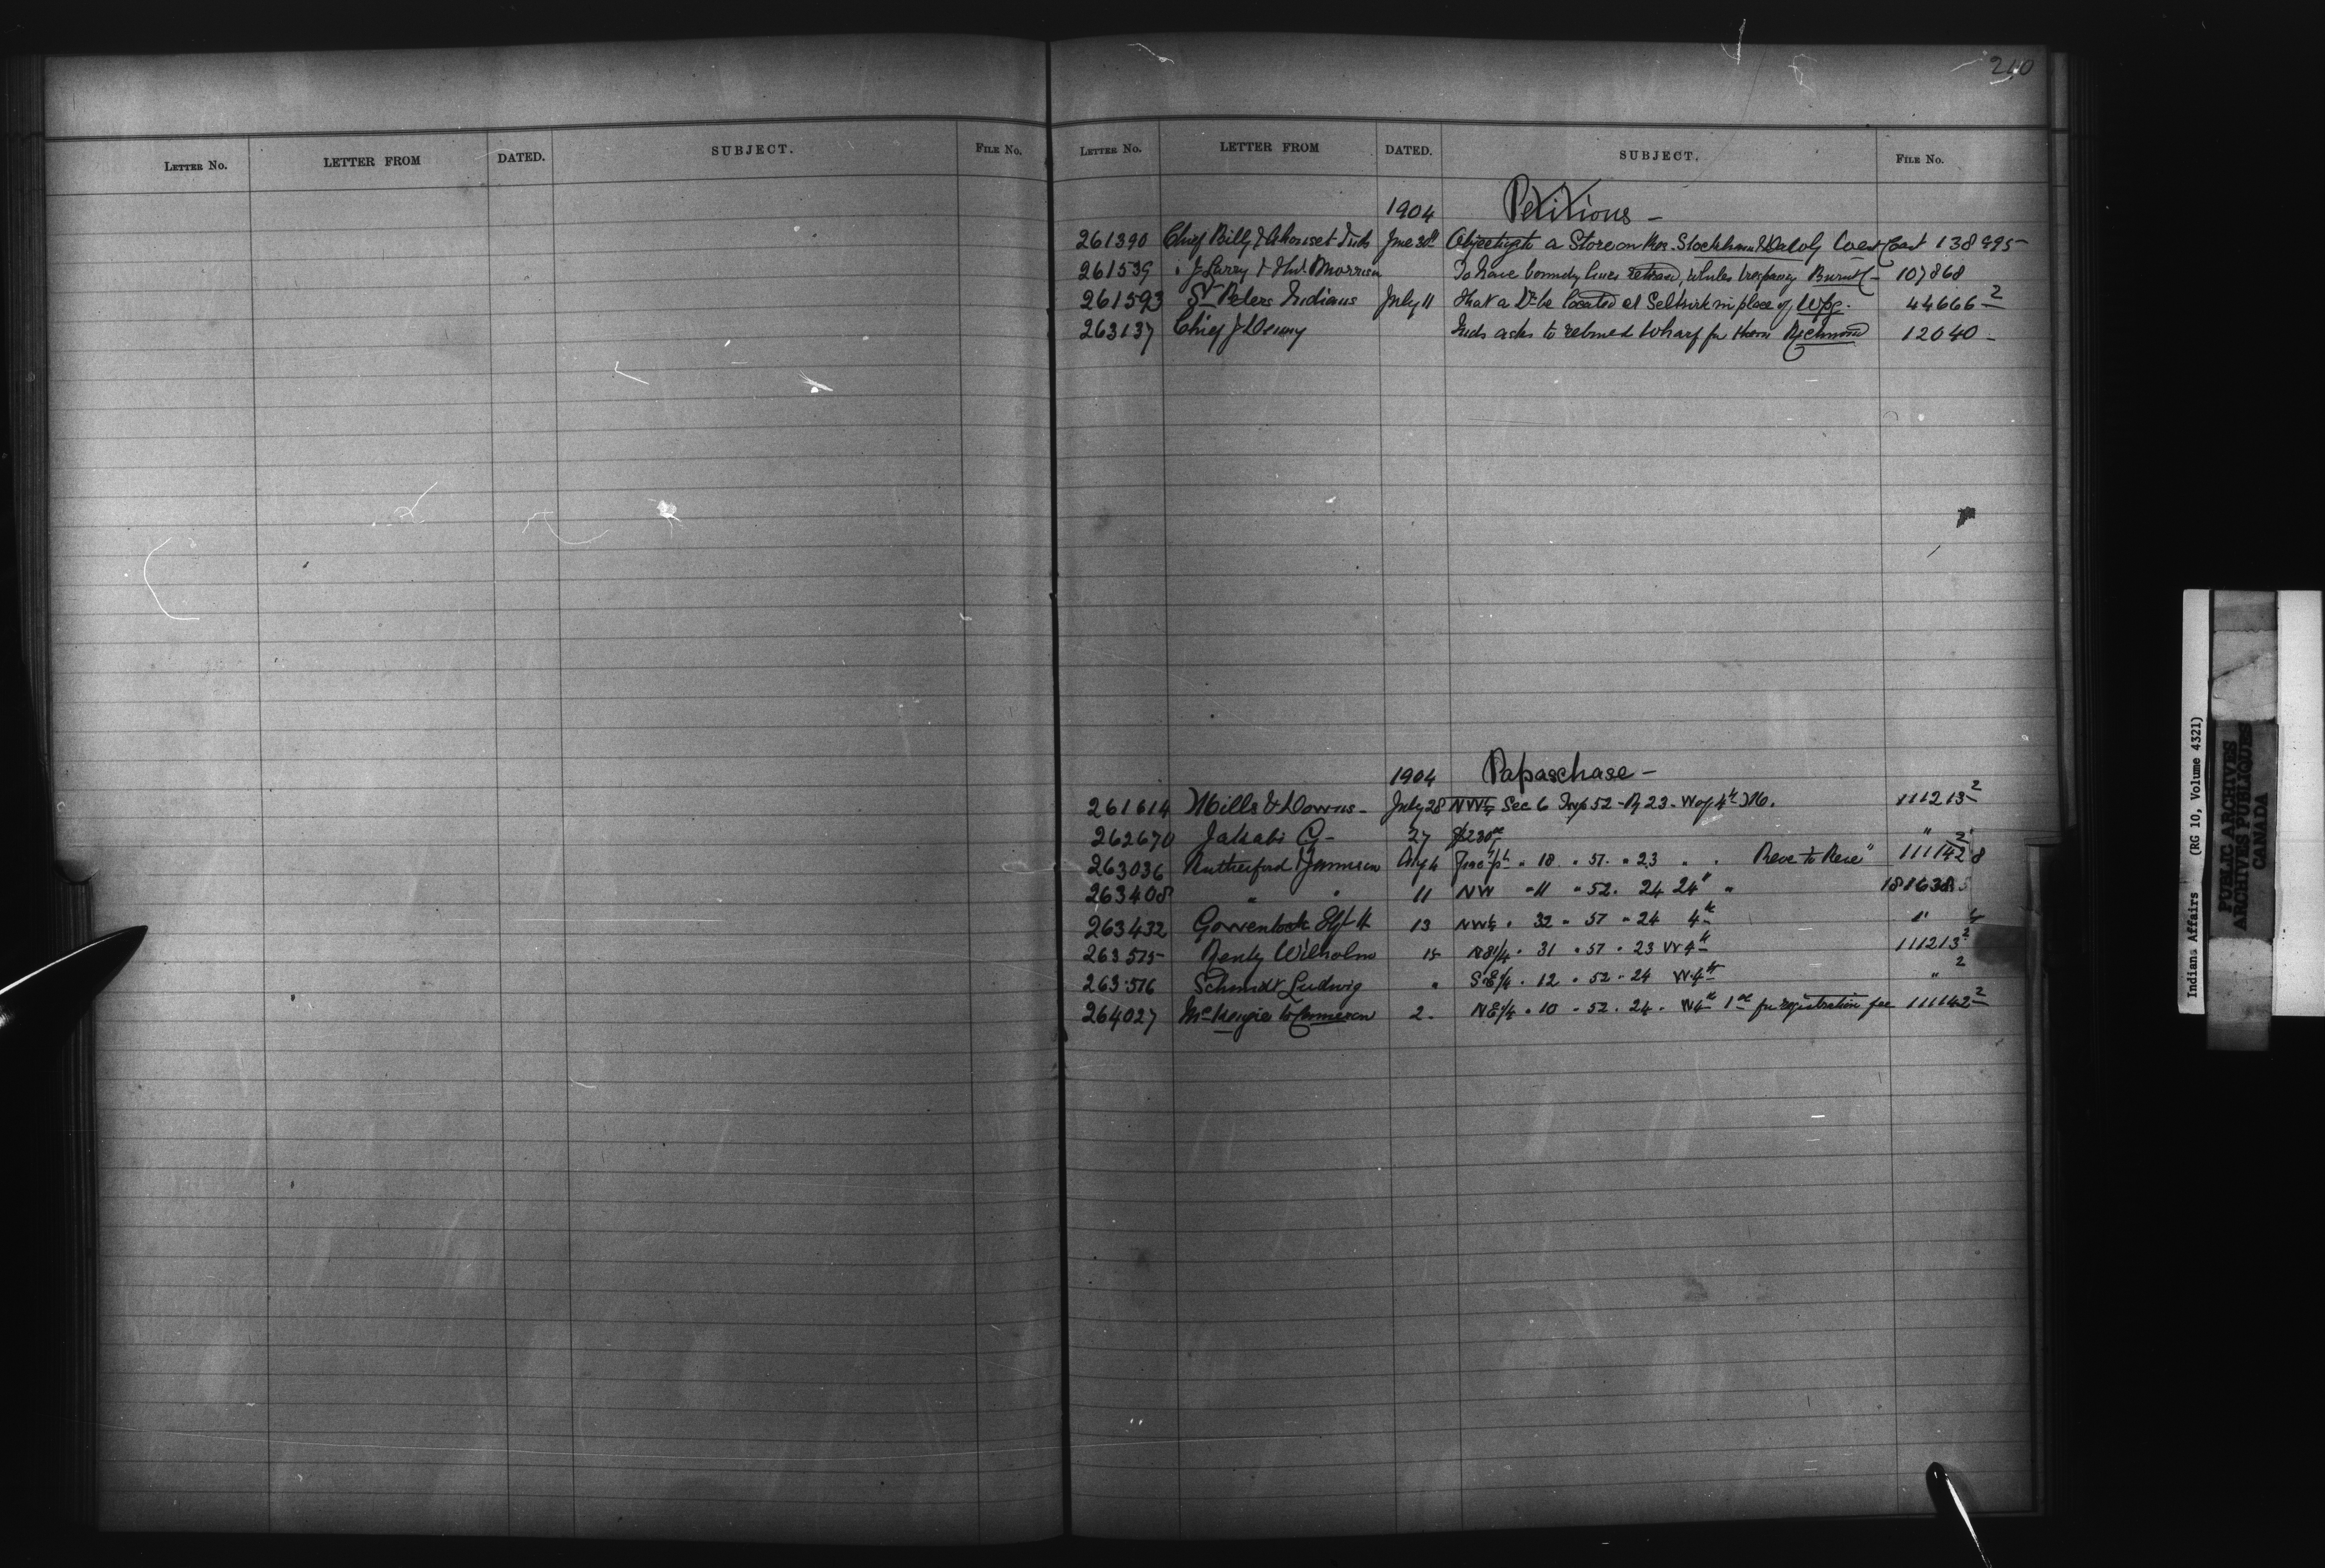 210
LETTER NO. LETTER FROM DATED. SUBJECT. FILE NO.
LETTER NO. LETTER FROM DATED. SUBJECT. FILE NO.
1904 Petitions -
261390 Chief Billy & Ahouset Inds June 30th a Store on Res. Stockham & Dawley West Coast 138995
261539 " J. Larry & Thos. Morrison To have boundy lines 107868
261593 St Peters Indians July 11 that a Dr be located at Selkirk in place of Wpg. 44666-2
263137 Chief J Denny Inds asks to rebuild Wharf for them Richmond 12040 -
1904 Papaschase -
261614 Mills & Downs - July 28 NW¼ Sec 6 Twp 52 - R 23 - W of 4th M. 111213-2
262670 G - 27 $230 " 2
263036 Rutherford & Jamieson Aug 4 " 18 " 51 . " 23 " . 111142
263408 " 11 NW " 11 " 52 . 24 "
263432 H 13 NW¼ . 32 " 51 " 24 4th "
263515 Wilholm 15 . 31 " 51 . 23 W 4th 111213-2
263516 Schmidt Ludwig " S.E¼ . 12 " 52 . 24 W.4th " 2
264027 McKenzie to Cameron 2 . NE¼ . 10 . 52 . 24 . W4th 1.00 for registration fee 111142-2
Indians Affairs (RG 10, Volume 4321)
PUBLIC ARCHIVES
ARCHIVES PUBLIQUES
CANADA